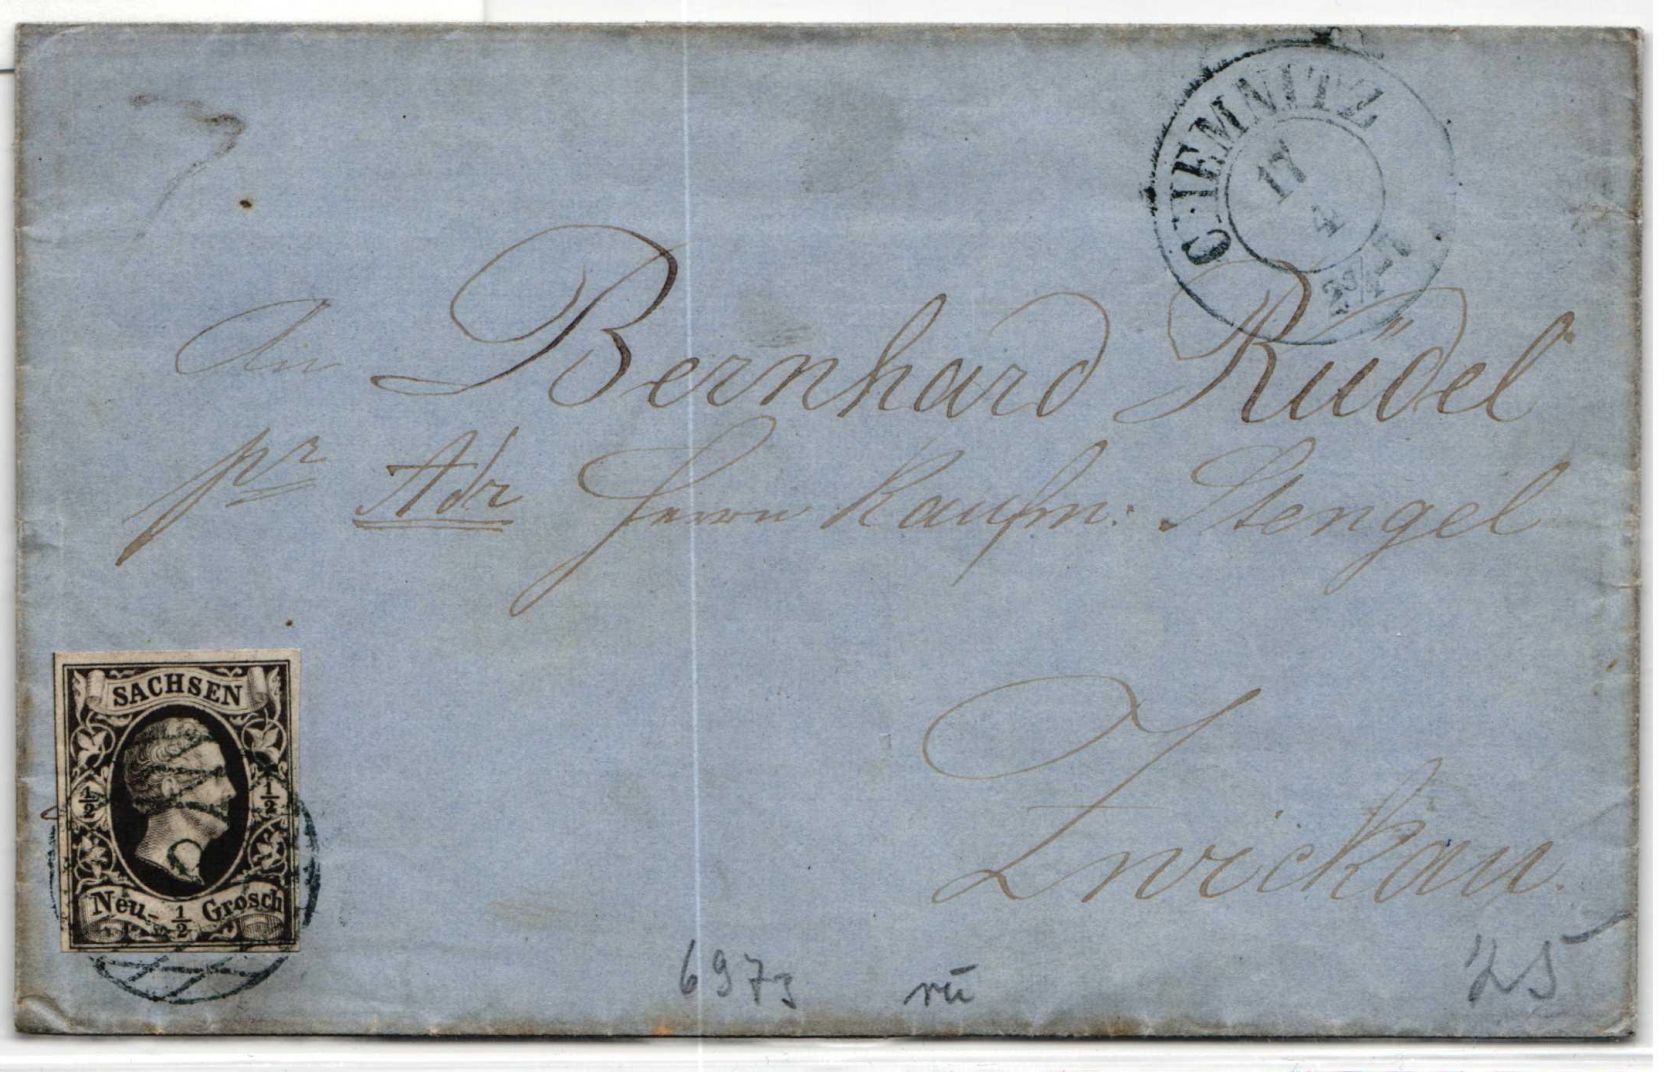 CHEMNITZ
17
4
An
Bernhard Rüdel
pr Adr Herrn Kaufm: Stengel
Zwickau.
SACHSEN
½ ½
Neu- ½ Grosch
25